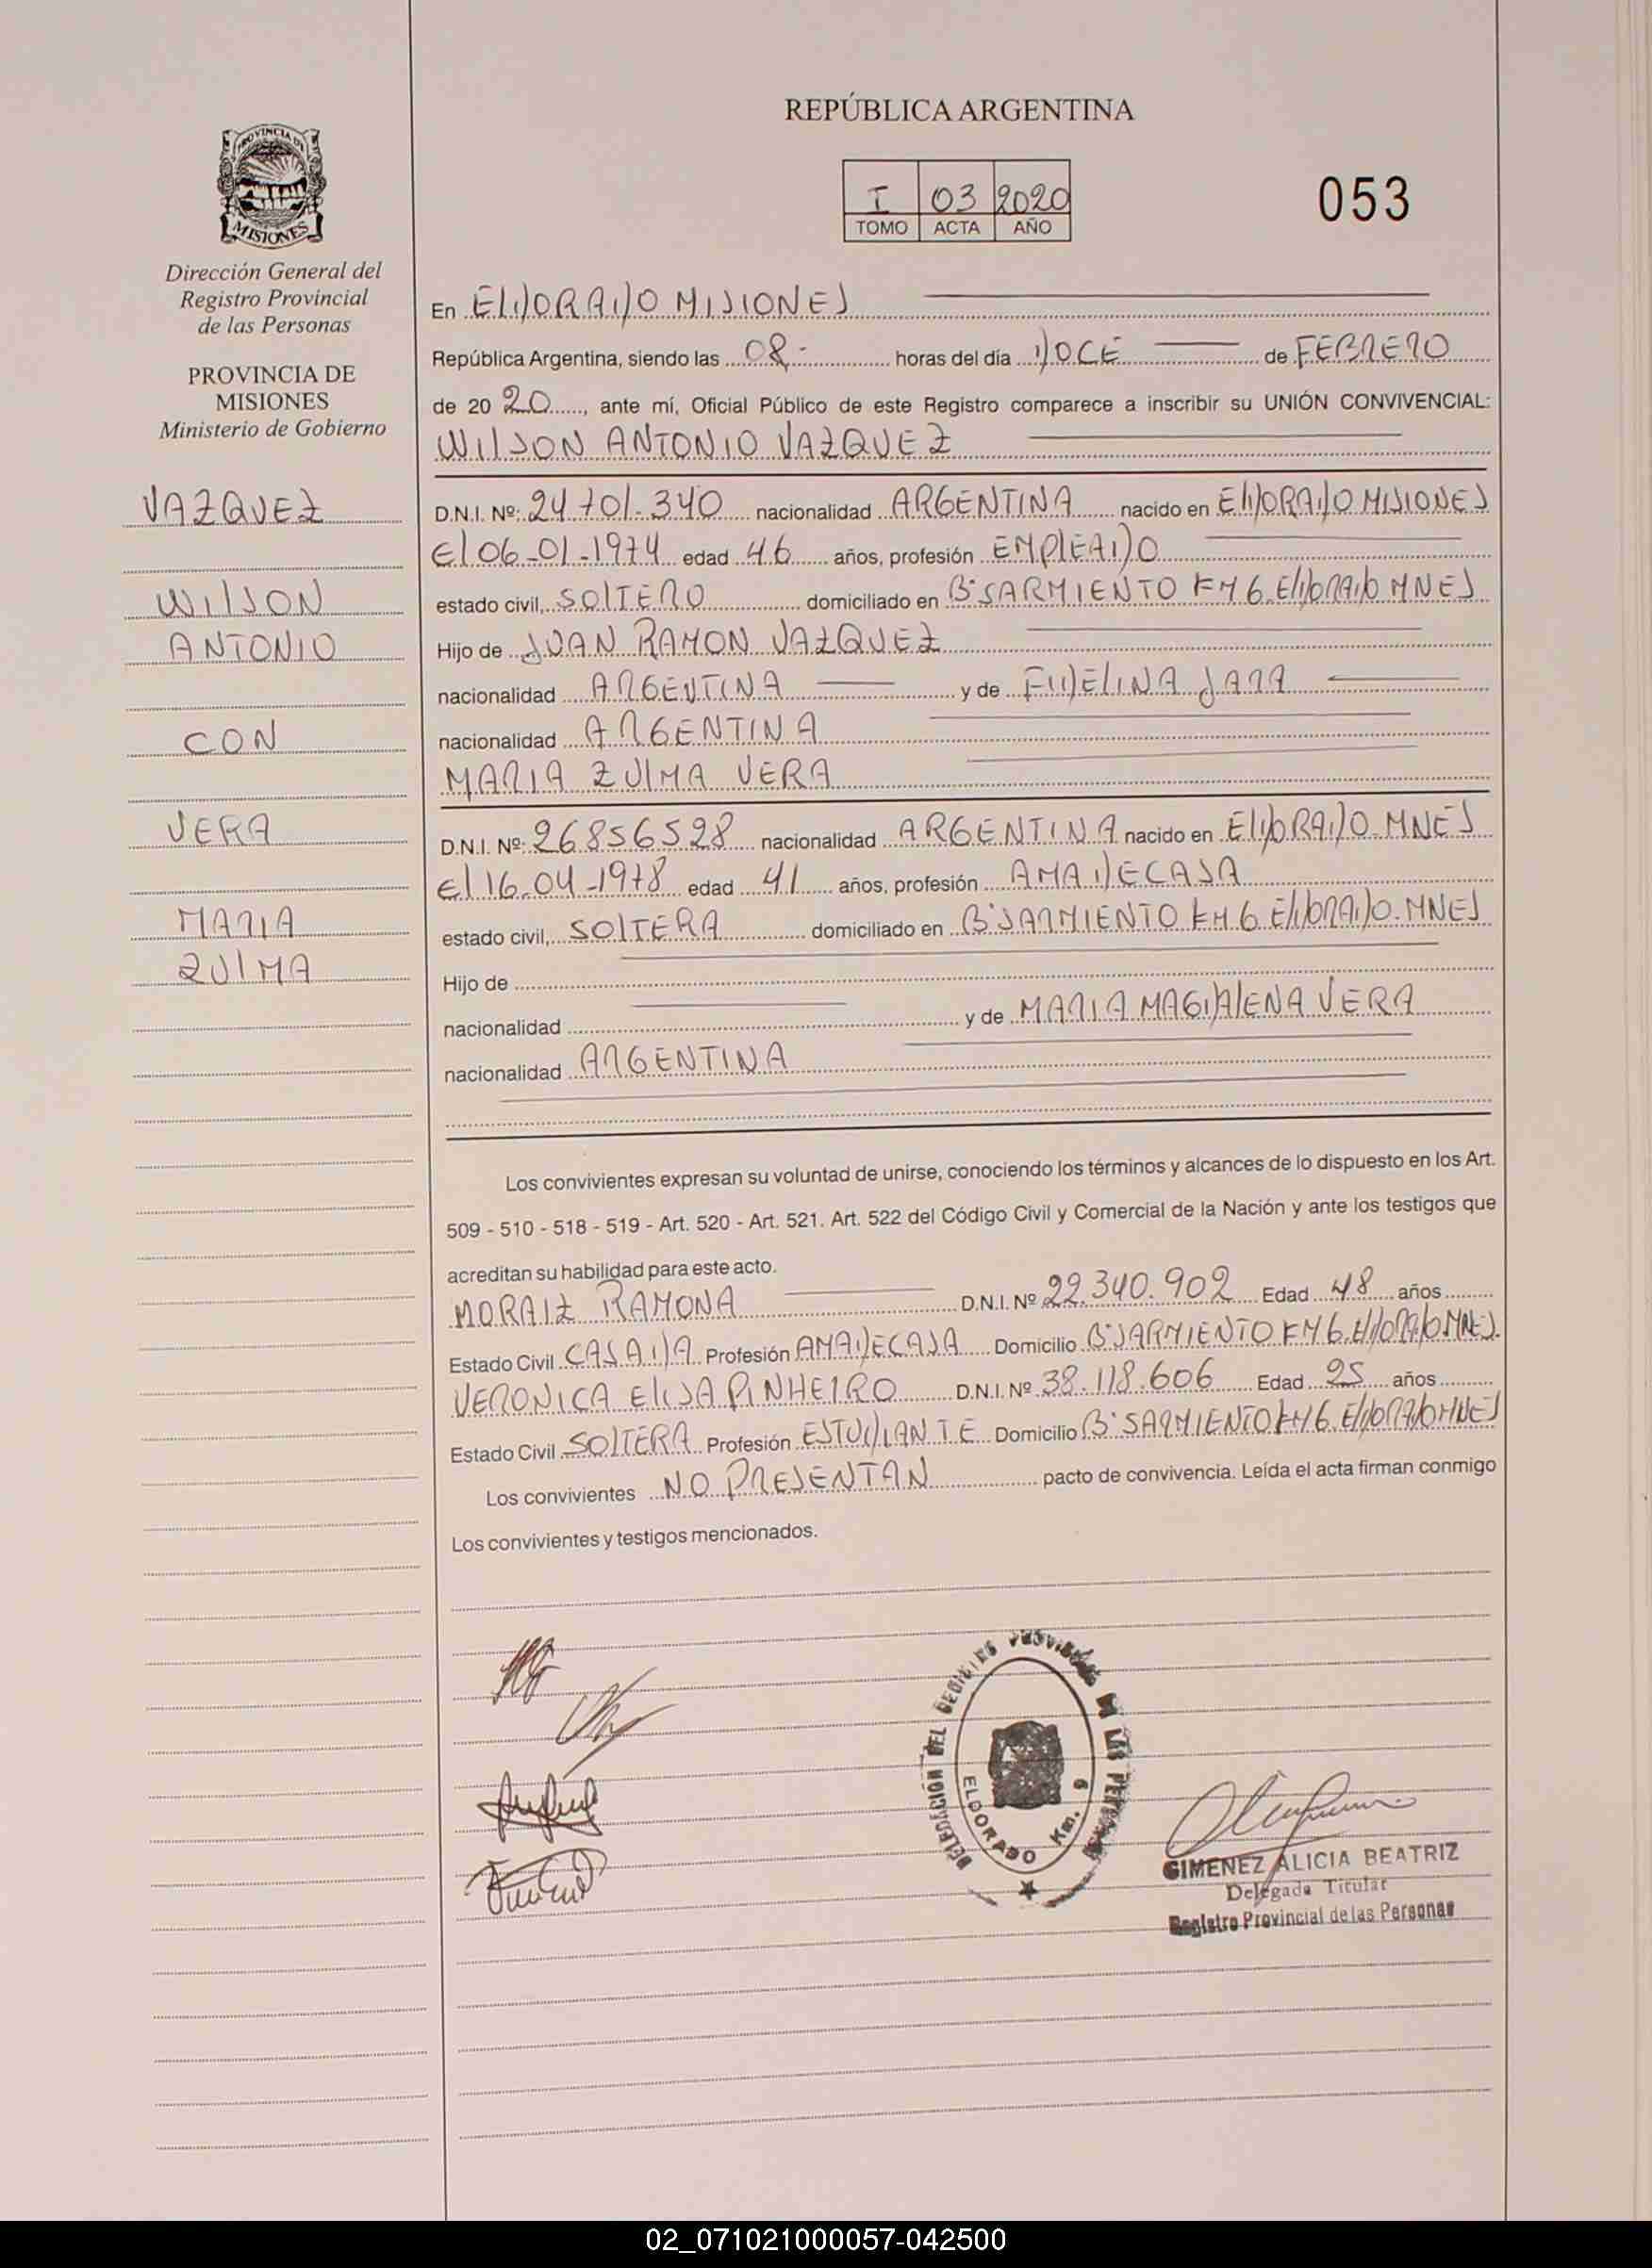 REPÚBLICA ARGENTINA
I 03 2020
TOMO ACTA AÑO
053
PROVINCIA DE
MISIONES
Dirección General del
Registro Provincial
de las Personas
PROVINCIA DE
MISIONES
Ministerio de Gobierno
VAZQUEZ
WILSON
ANTONIO
CON
VERA
MARIA
ZULMA
En ELDORADO MISIONES
República Argentina, siendo las 08- horas del día DOCE de FEBRERO
de 20 20, ante mí, Oficial Público de este Registro comparece a inscribir su UNIÓN CONVIVENCIAL:
WILSON ANTONIO VAZQUEZ
D.N.I. Nº: 24701.340 nacionalidad ARGENTINA nacido en ELDORADO MISIONES
El 06-01-1974 edad 46 años, profesión EMPLEADO
estado civil, SOLTERO domiciliado en B° SARMIENTO KM 6. ELDORADO MNES
Hijo de JUAN RAMON VAZQUEZ
nacionalidad ARGENTINA y de FIDELINA JARA
nacionalidad ARGENTINA
MARIA ZULMA VERA
D.N.I. Nº: 26856528 nacionalidad ARGENTINA nacido en ELDORADO. MNES
El 16-04-1978 edad 41 años, profesión AMA DE CASA
estado civil, SOLTERA domiciliado en B° SARMIENTO KM 6. ELDORADO. MNES
Hijo de
nacionalidad y de MARIA MAGDALENA VERA
nacionalidad ARGENTINA
Los convivientes expresan su voluntad de unirse, conociendo los términos y alcances de lo dispuesto en los Art.
509 - 510 - 518 - 519 - Art. 520 - Art. 521. Art. 522 del Código Civil y Comercial de la Nación y ante los testigos que
acreditan su habilidad para este acto.
MORAIZ RAMONA D.N.I. Nº 22.340.902 Edad 48 años
Estado Civil CASADA Profesión AMA DE CASA Domicilio B° SARMIENTO KM 6. ELDORADO MNES.
VERONICA ELISA PINHEIRO D.N.I. Nº 38.118.606 Edad 25 años
Estado Civil SOLTERA Profesión ESTUDIANTE Domicilio B° SARMIENTO KM 6. ELDORADO MNES
Los convivientes NO PRESENTAN pacto de convivencia. Leída el acta firman conmigo
Los convivientes y testigos mencionados.
DELEGACIÓN DEL REGISTRO PROVINCIAL DE LAS PERSONAS
ELDORADO Km. 6
GIMENEZ ALICIA BEATRIZ
Delegada Titular
Registro Provincial de las Personas
02_071021000057-042500